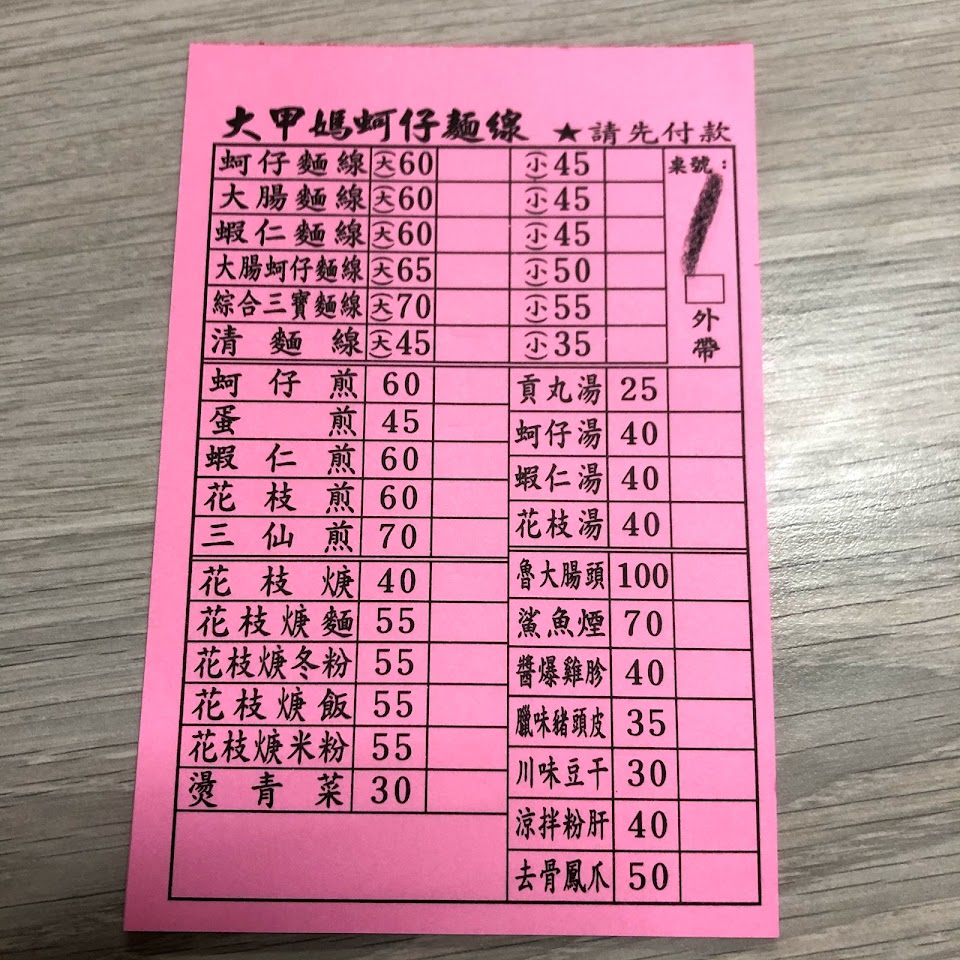 大甲媽蚵仔麵線 ★請先付款
蚵仔麵線 (大)60 (小)45
大腸麵線 (大)60 (小)45
蝦仁麵線 (大)60 (小)45
大腸蚵仔麵線 (大)65 (小)50
綜合三寶麵線 (大)70 (小)55
清麵線 (大)45 (小)35
桌號：
1
外帶
蚵仔煎 60
蛋煎 45
蝦仁煎 60
花枝煎 60
三仙煎 70
花枝焿 40
花枝焿麵 55
花枝焿冬粉 55
花枝焿飯 55
花枝焿米粉 55
燙青菜 30
貢丸湯 25
蚵仔湯 40
蝦仁湯 40
花枝湯 40
魯大腸頭 100
鯊魚煙 70
醬爆雞胗 40
臘味豬頭皮 35
川味豆干 30
涼拌粉肝 40
去骨鳳爪 50